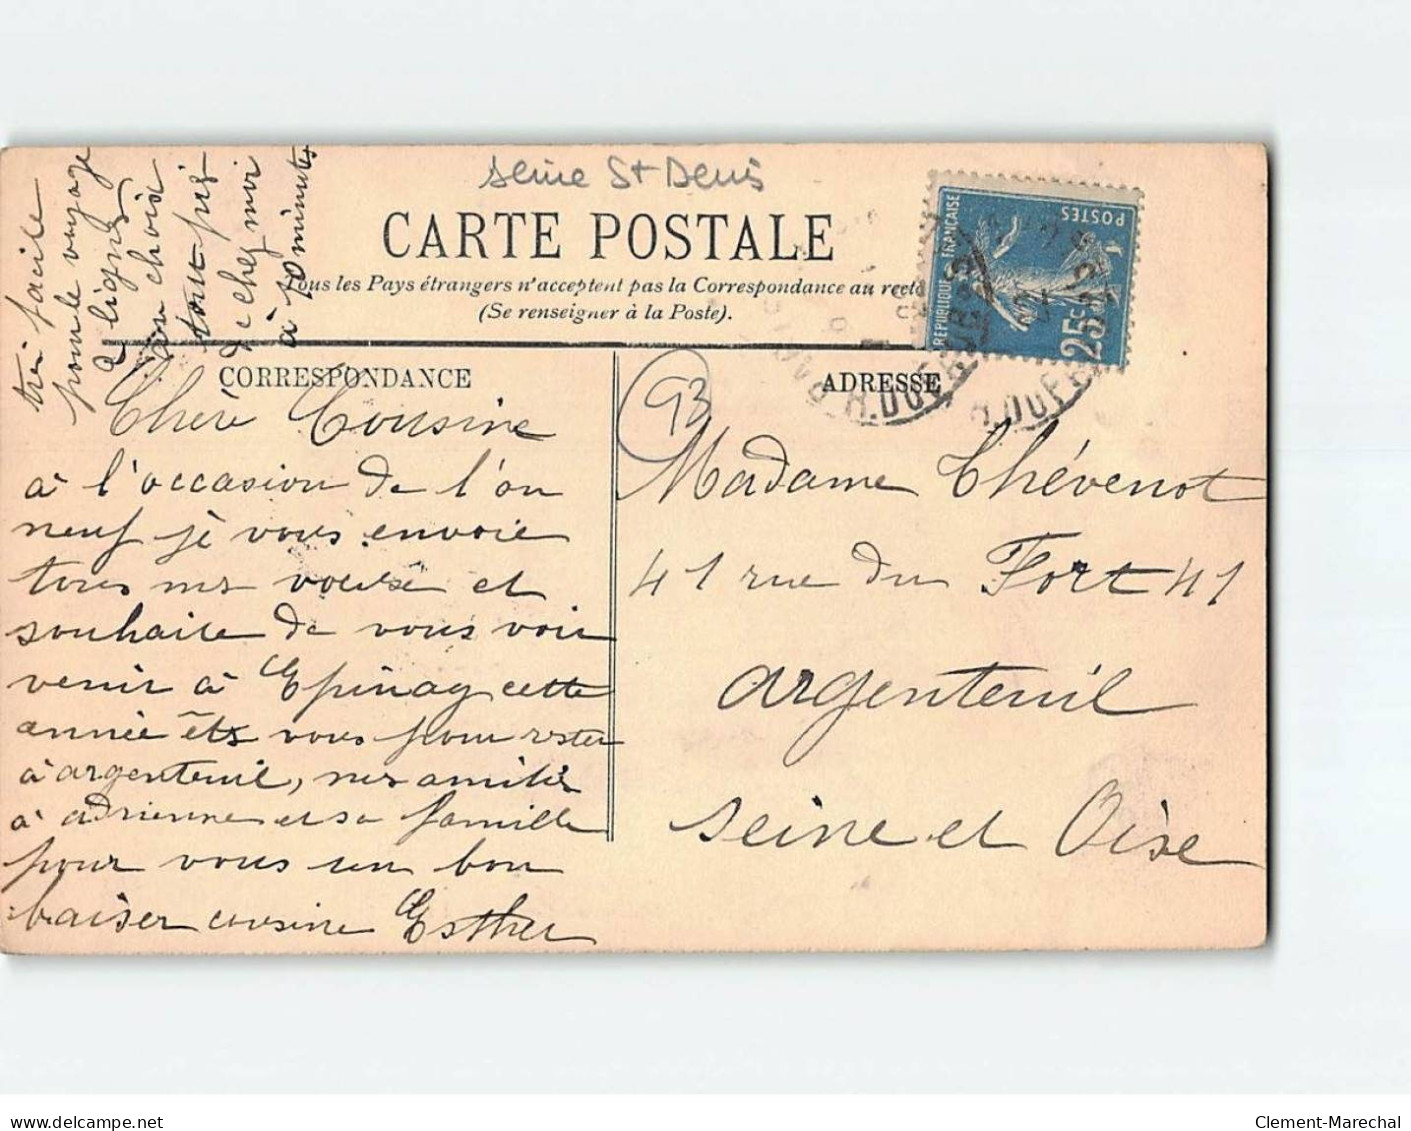 seine St Denis
CARTE POSTALE
Tous les Pays étrangers n'acceptent pas la Correspondance au recto
(Se renseigner à la Poste).
CORRESPONDANCE
ADRESSE
93
REPUBLIQUE FRANÇAISE
POSTES
25c
Chere Cousine
à l'occasion de l'an
neuf je vous envoie
tous mes voeux et
souhaite de vous voir
venir à Epinay cette
année êtes vous pour rester
à argenteuil, mes amitiés
à adrienne et sa famille
pour vous un bon
baiser cousine Esther
tres facile
pour le voyage
2 lignes
au choix
tout près
de chez moi
à 10 minutes
Madame Thévenot
41 rue du Fort 41
argenteuil
seine et Oise
delcampe.net
Clement-Marechal